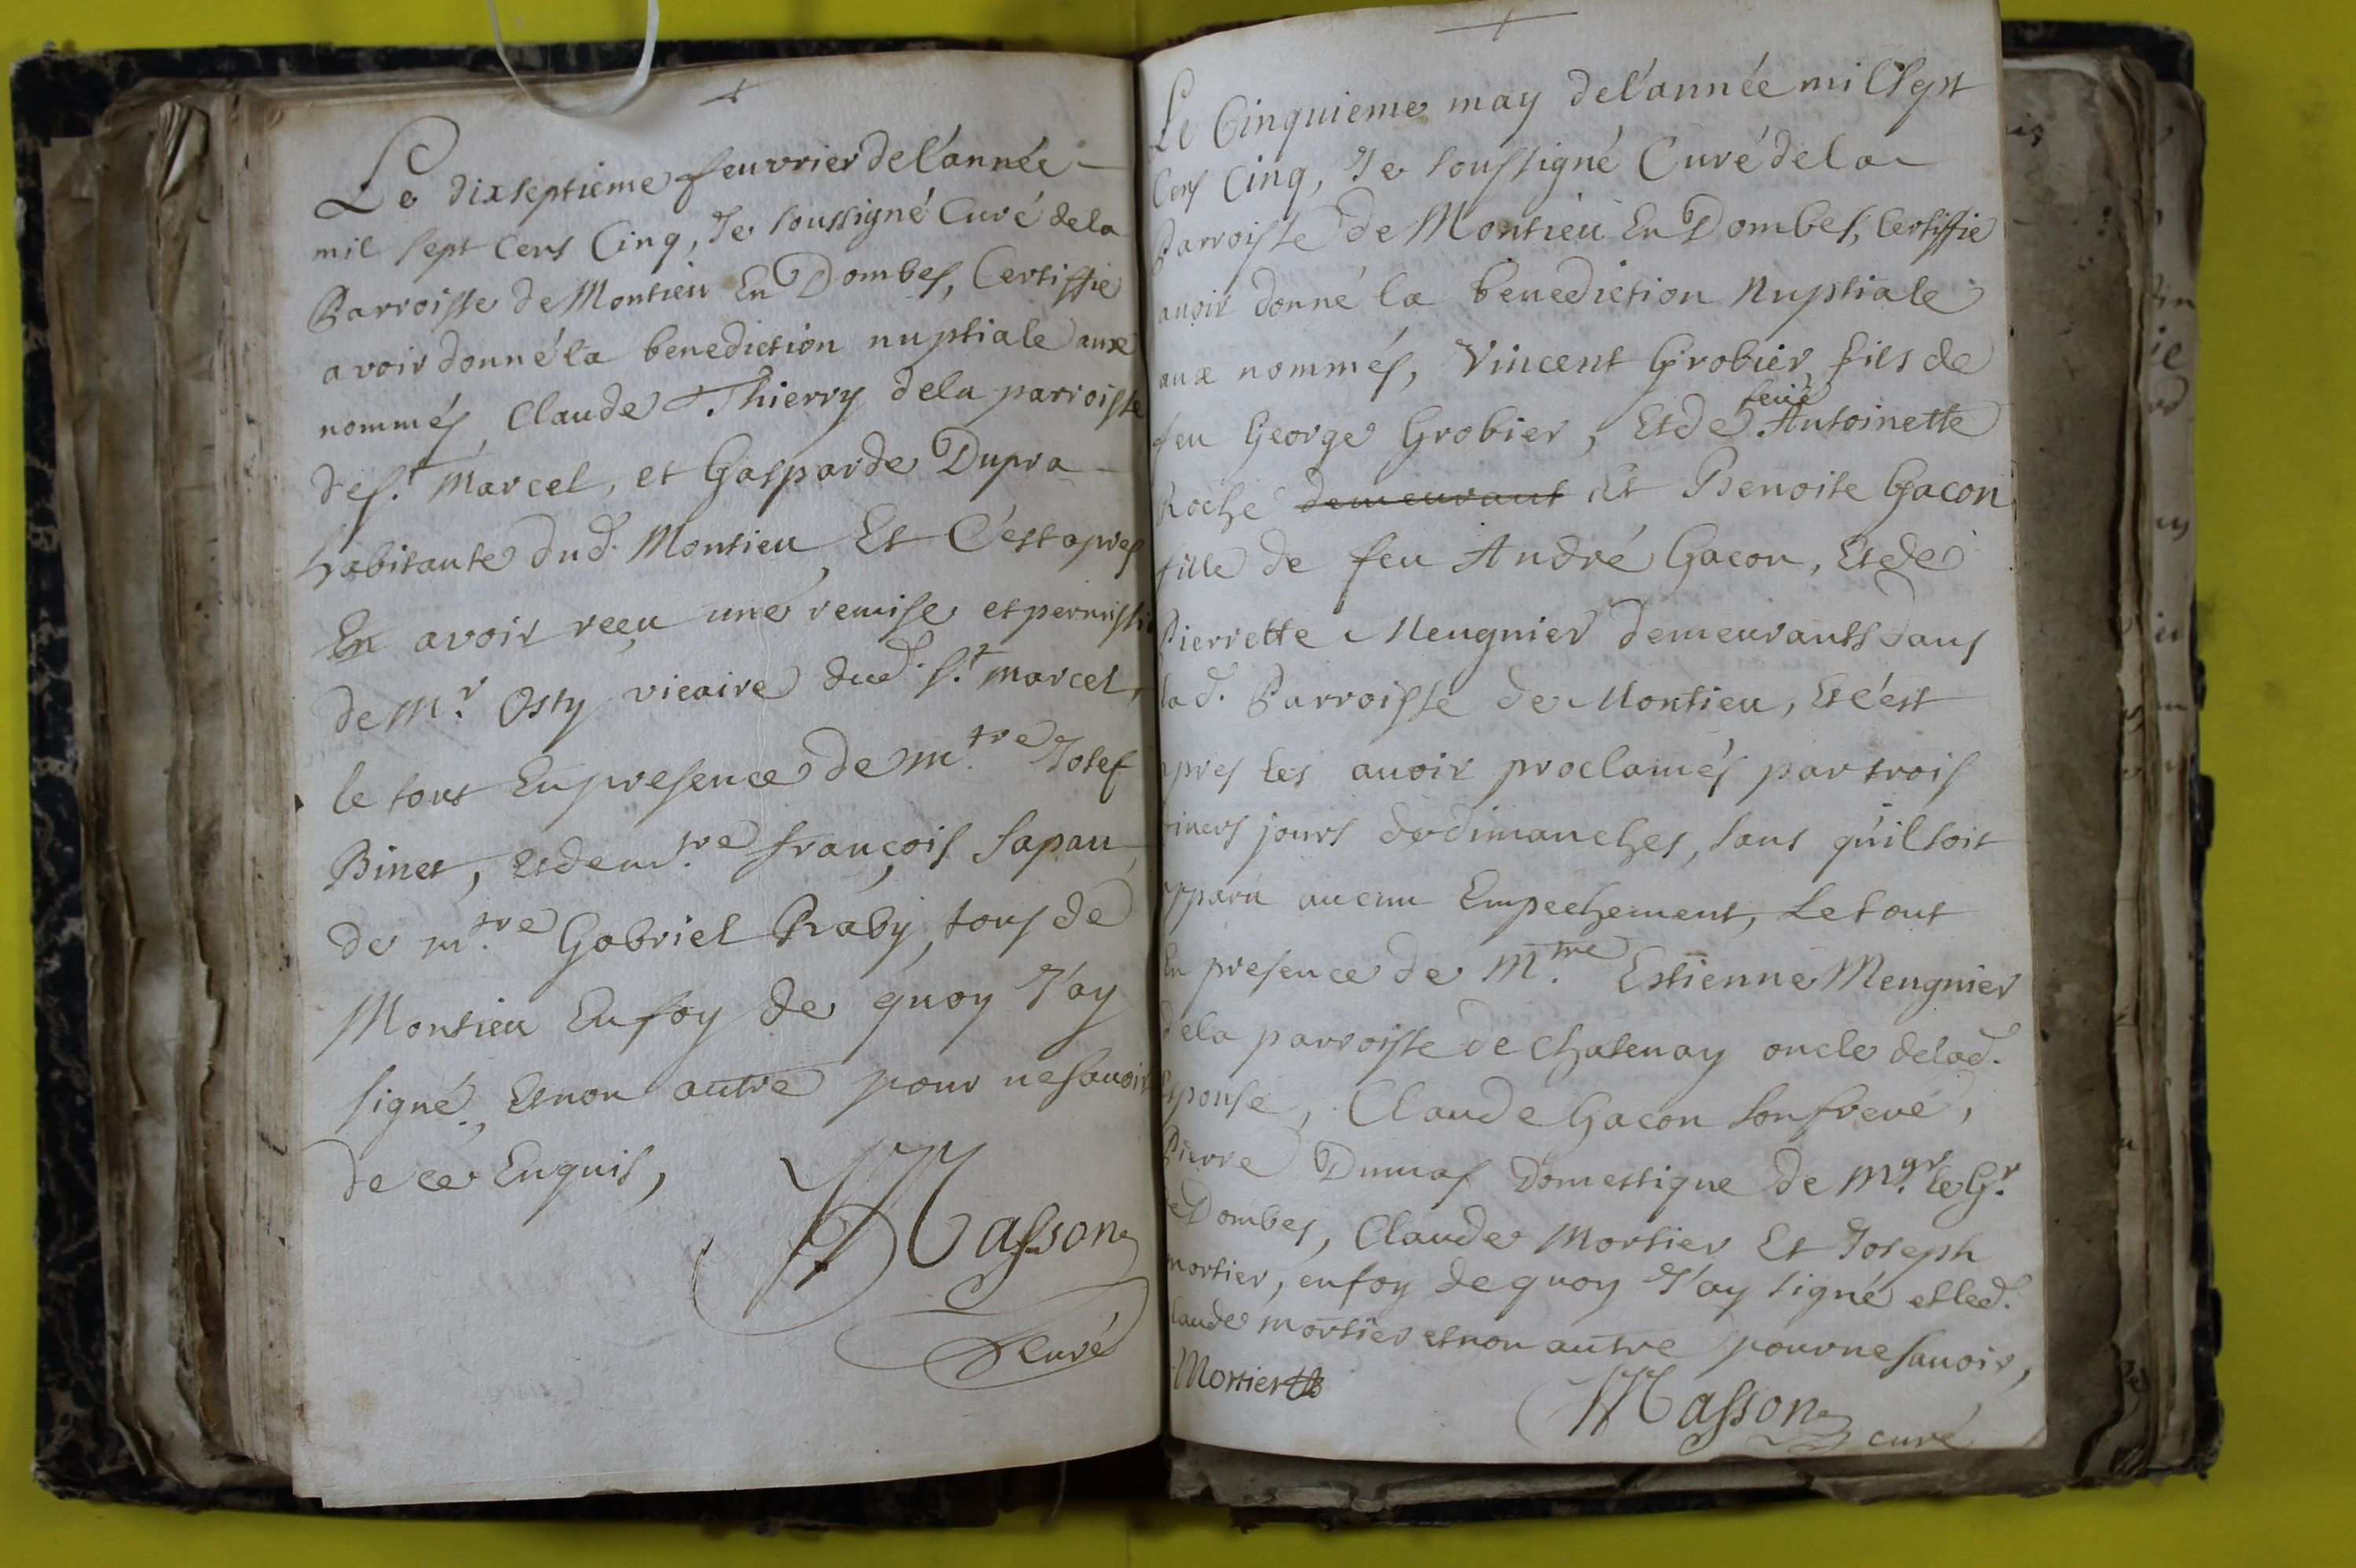 Le dixseptieme feuvrier de l'année
mil sept cens Cinq, Je soussigné Curé dela
Parroisse de Montieu En Dombes, Certiffie
avoir donné la benediction nuptiale aux
nommés, Claude Thierry dela parroisse
de st. Marcel, et Gasparde Dupra
habitante dud. Montieu, Et C'est apres
En avoir reçu une remise et permissi
de Mr. Osty vicaire dud. st. marcel,
le tout En presence de mtre. Josef
Binet, et de mtre. françois Sapau,
de mtre. Gabriel Raby, tous de
Montieu En foy de quoy J'ay
signé, Et non autre pour ne savoir
de ce Enquis,
Masson
Curé
Le Cinquieme may de l'année mil sept
Cens Cinq, Je soussigné Curé de la
Parroisse de Montieu En Dombes, Certiffie
avoir donné la benediction Nuptiale
aux nommés, Vincent Grobier, fils de
feüe
feu George Grobier, Et de Antoinette
Roche demeurant Et Benoite Gacon
fille de feu André Gacon, Et de
Pierrette Meugnier demeurants dans
lad. Parroisse de Montieu, Et c'est
apres les avoir proclamés par trois
divers jours de dimanches, sans qu'il soit
apparu aucun Empechement, Le tout
En presence de Mtre. Estienne Meugnier
dela parroisse de Chatenay oncle de lad.
Epouse, Claude Gacon son frere,
Pierre Dumas Domestique de Mgr. le Gr.
de Dombes, Claude Mortier Et Joseph
mortier, en foy de quoy J'ay signé et led.
Claude mortier et non autre pour ne savoir,
Mortier
Masson curé